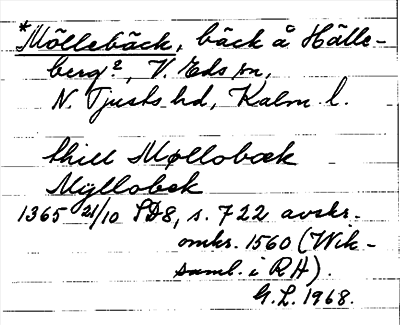 *Möllebäck, bäck å Hälle-
berg?, V. Eds sn,
N. Tjusts hd, Kalm. l.
thill Møllobæk
Myllobek
1365 21/10 SD8, s. 722 avskr.
omkr. 1560 (Wik-
saml. i RA).
G.L. 1968.